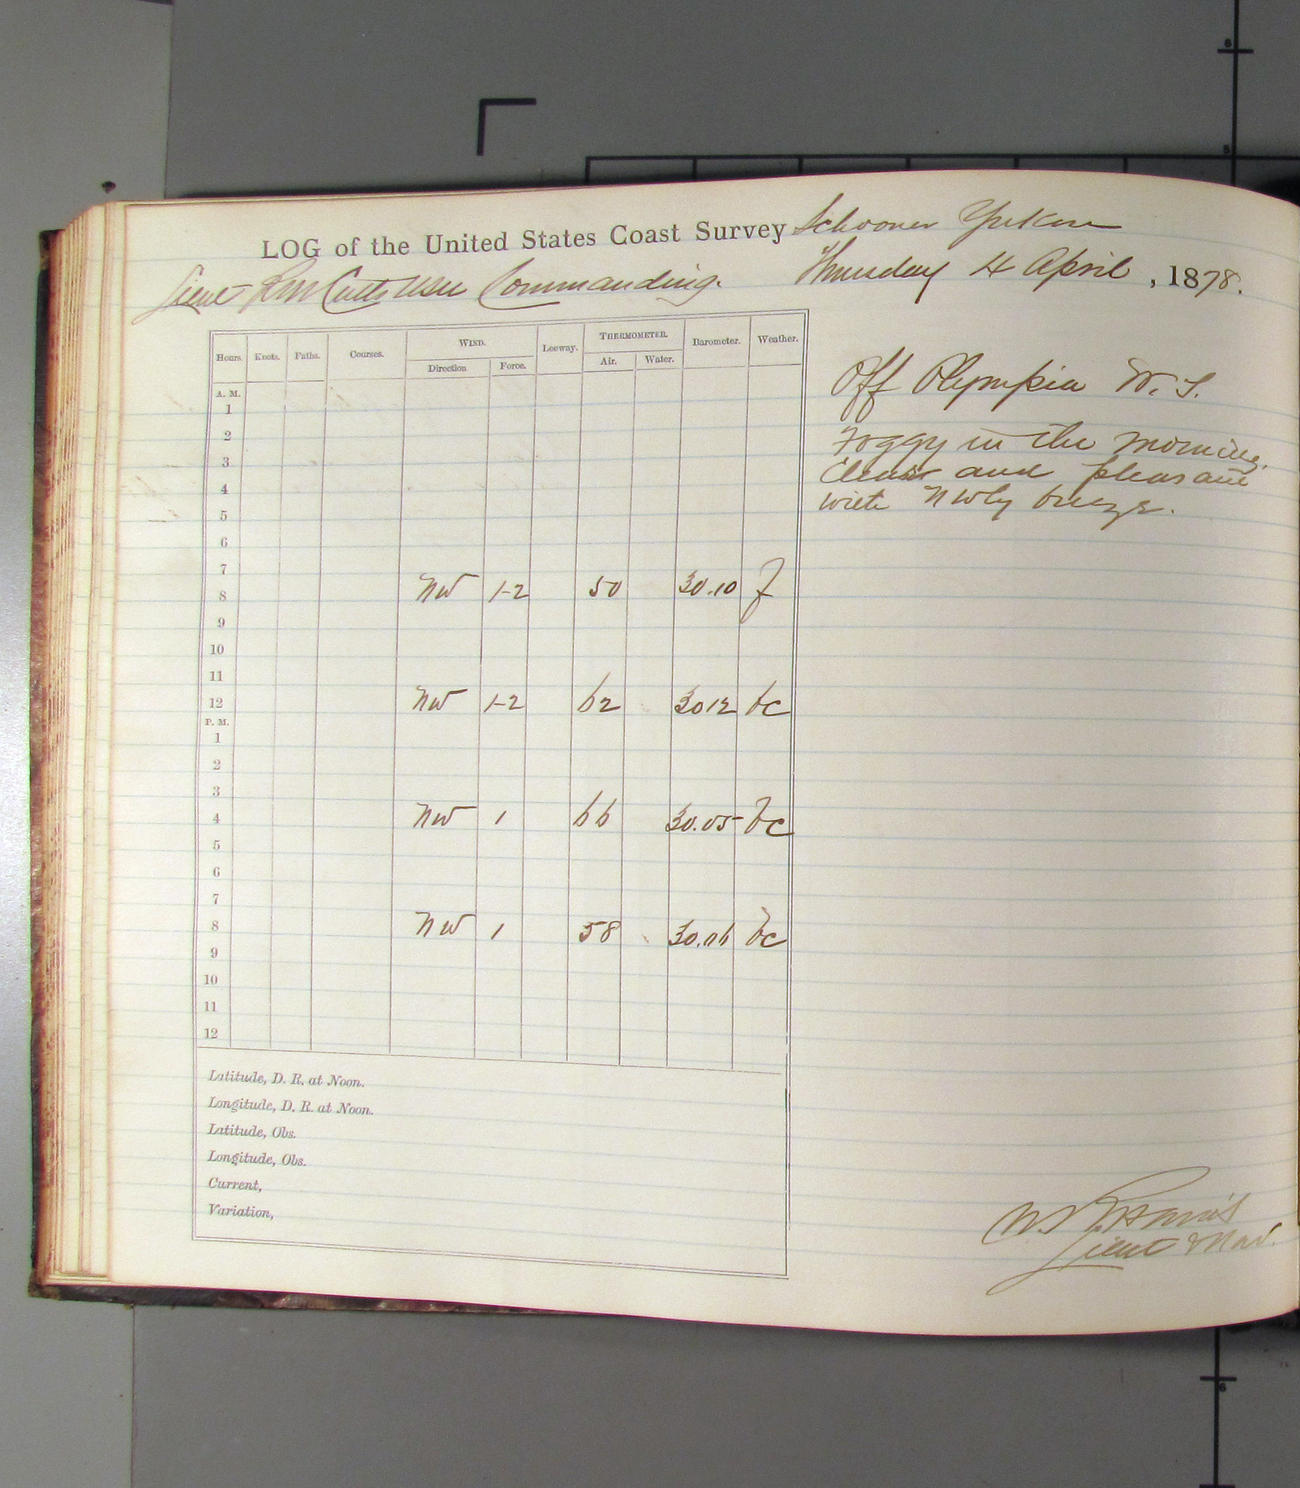 LOG of the United States Coast Survey Schooner Yukon
Lieut R M Cutts USN Commanding. Thursday 4 April , 1878.
Hours. Knots. Faths. Courses. WIND. Leeway. THERMOMETER. Barometer. Weather.
Direction Force. Air. Water.
A. M.
1
2
3
4
5
6
7
8 NW 1-2 50 30.10 f
9
10
11
12 NW 1-2 62 3012 bc
P. M.
1
2
3
4 NW 1 66 30.05 bc
5
6
7
8 NW 1 58 30.06 bc
9
10
11
12
Latitude, D. R. at Noon.
Longitude, D. R. at Noon.
Latitude, Obs.
Longitude, Obs.
Current,
Variation,
Off Olympia W. T.
Foggy in the morning.
Clear and pleasant
with NWly breeze.
Lieut & Nav.
5
6